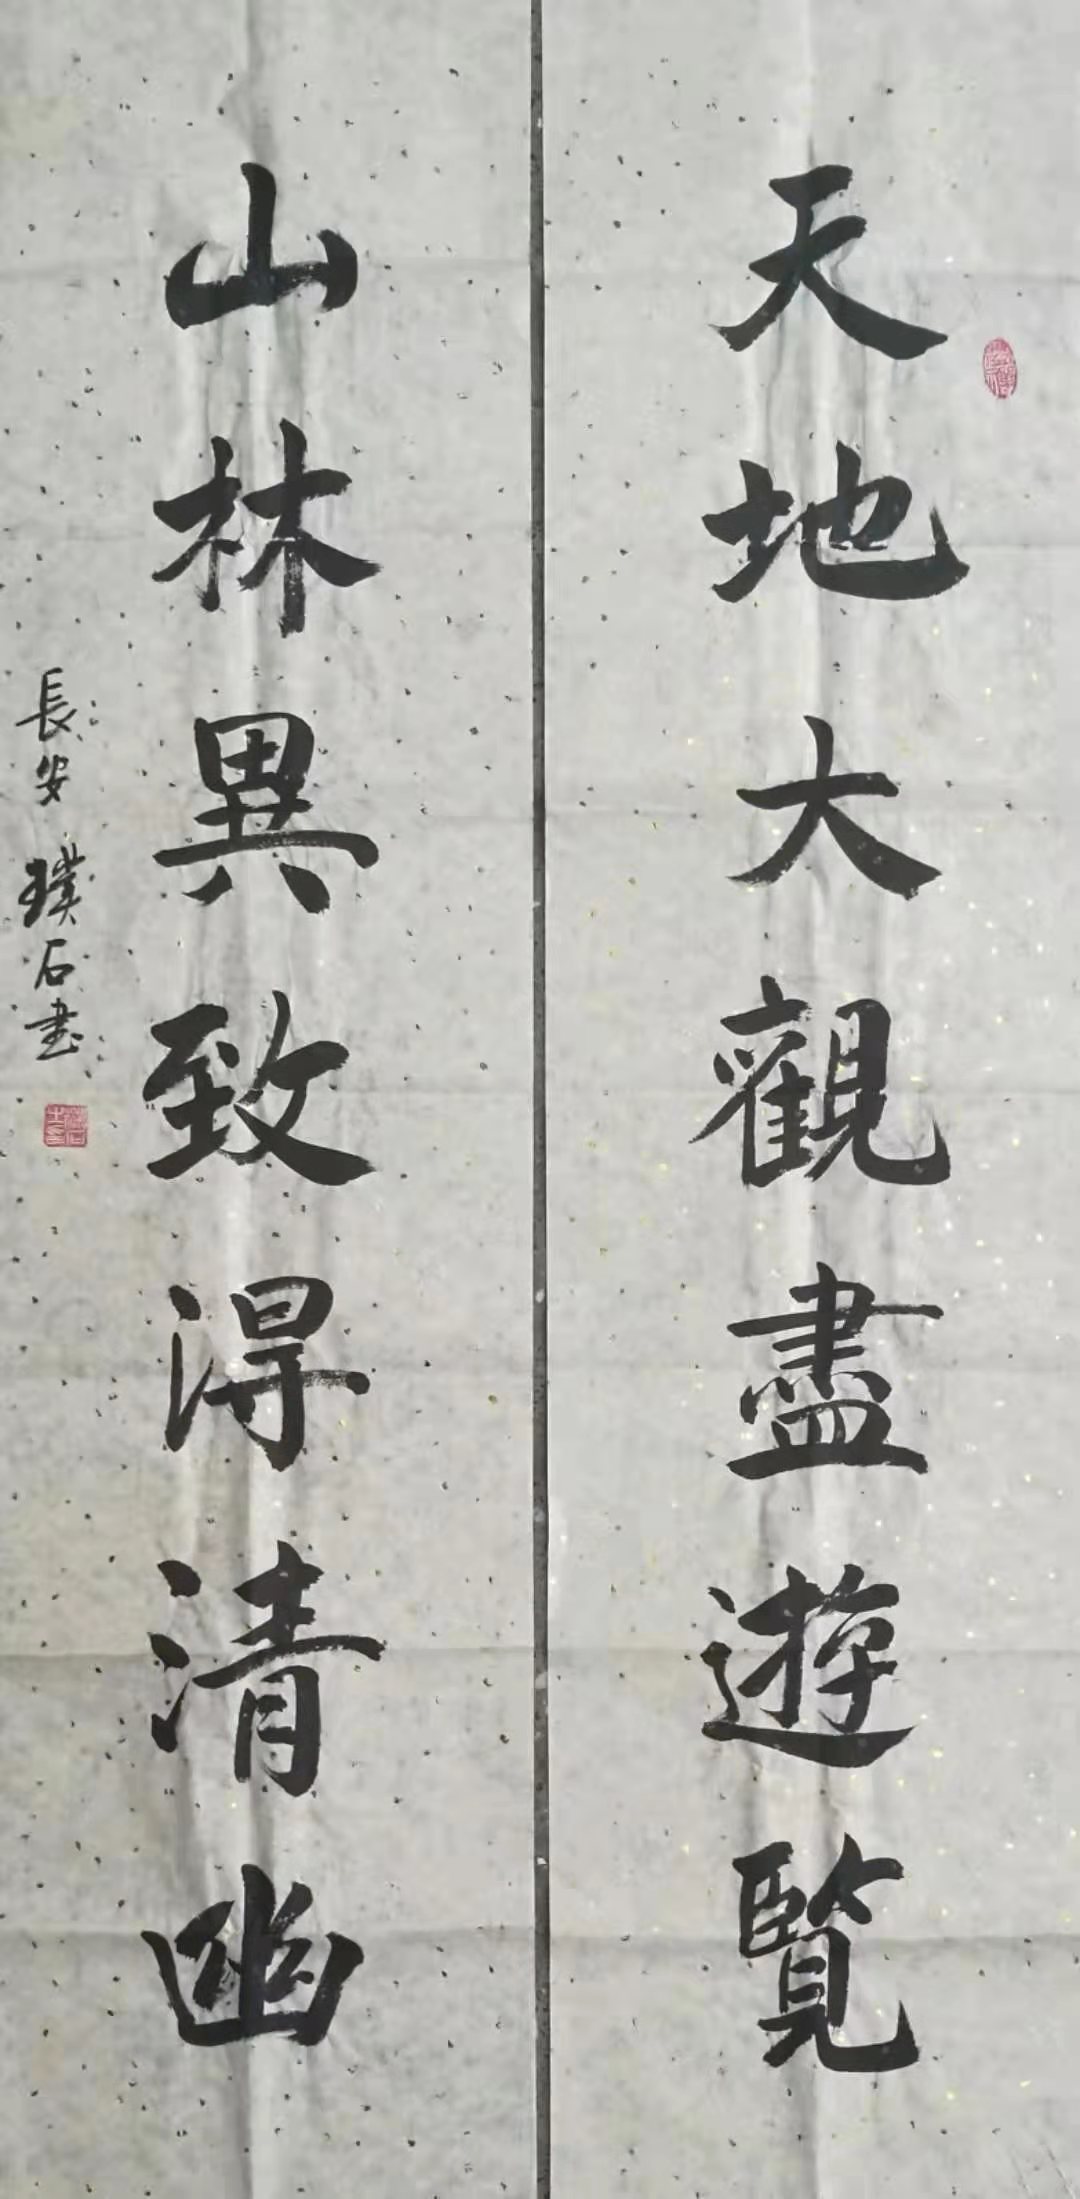 天地大觀盡遊覽
山林異致淂清幽
長安 璞石書